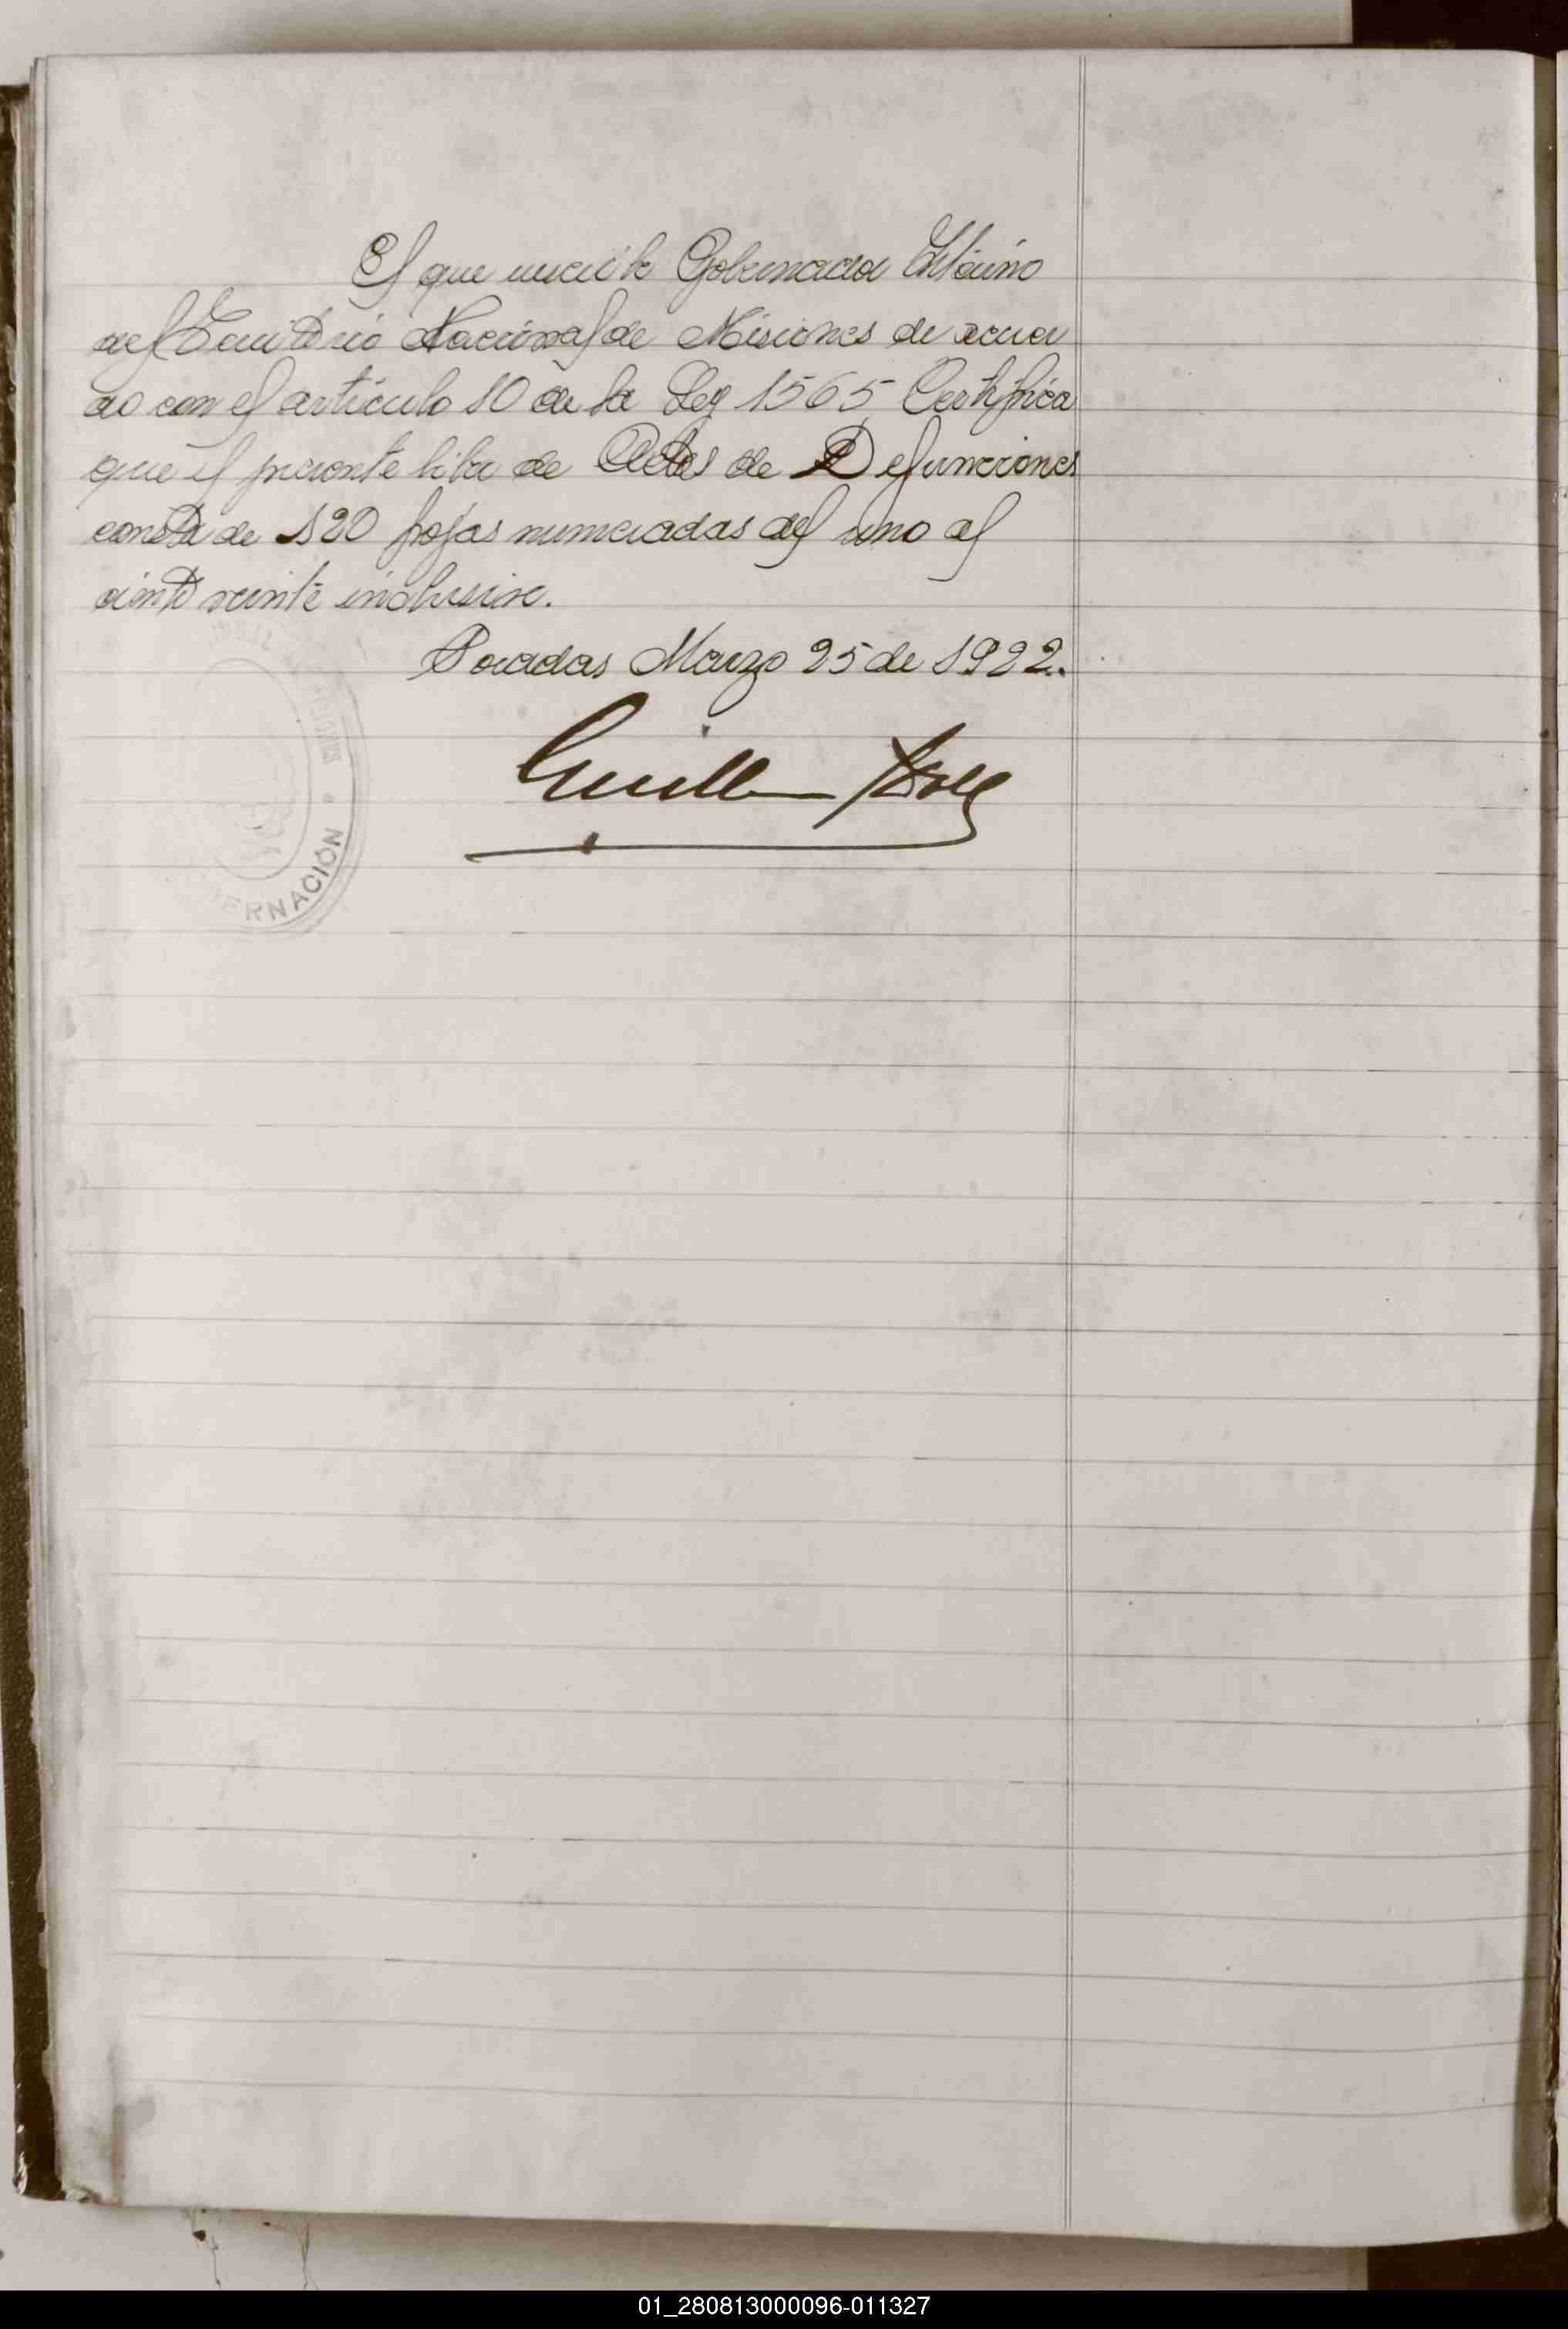 El que suscribe Gobernador Interino
del Territorio Nacional de Misiones de acuer
do con el artículo 10 de la Ley 1565 Certifica
que el presente libro de Actas de Defunciones
consta de 120 fojas numeradas del uno al
ciento veinte inclusive.
Posadas Marzo 25 de 1922.
ERNACIÓN
01_280813000096-011327